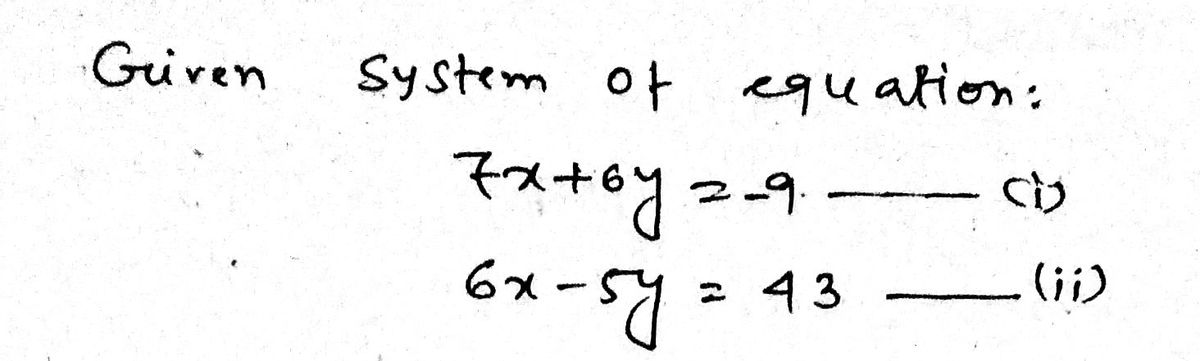 Given system of equation:
7x+6y = -9. —— (i)
6x-5y = 43 —— (ii)